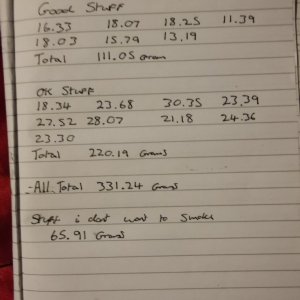 Good Stuff
16.33 18.07 18.25 11.39
18.03 15.79 13.19
Total 111.05 Grams
OK Stuff
18.34 23.68 30.35 23.39
27.52 28.07 21.18 24.36
23.30
Total 220.19 Grams
-All Total 331.24 Grams
Stuff i dont want to smoke
65.91 Grams